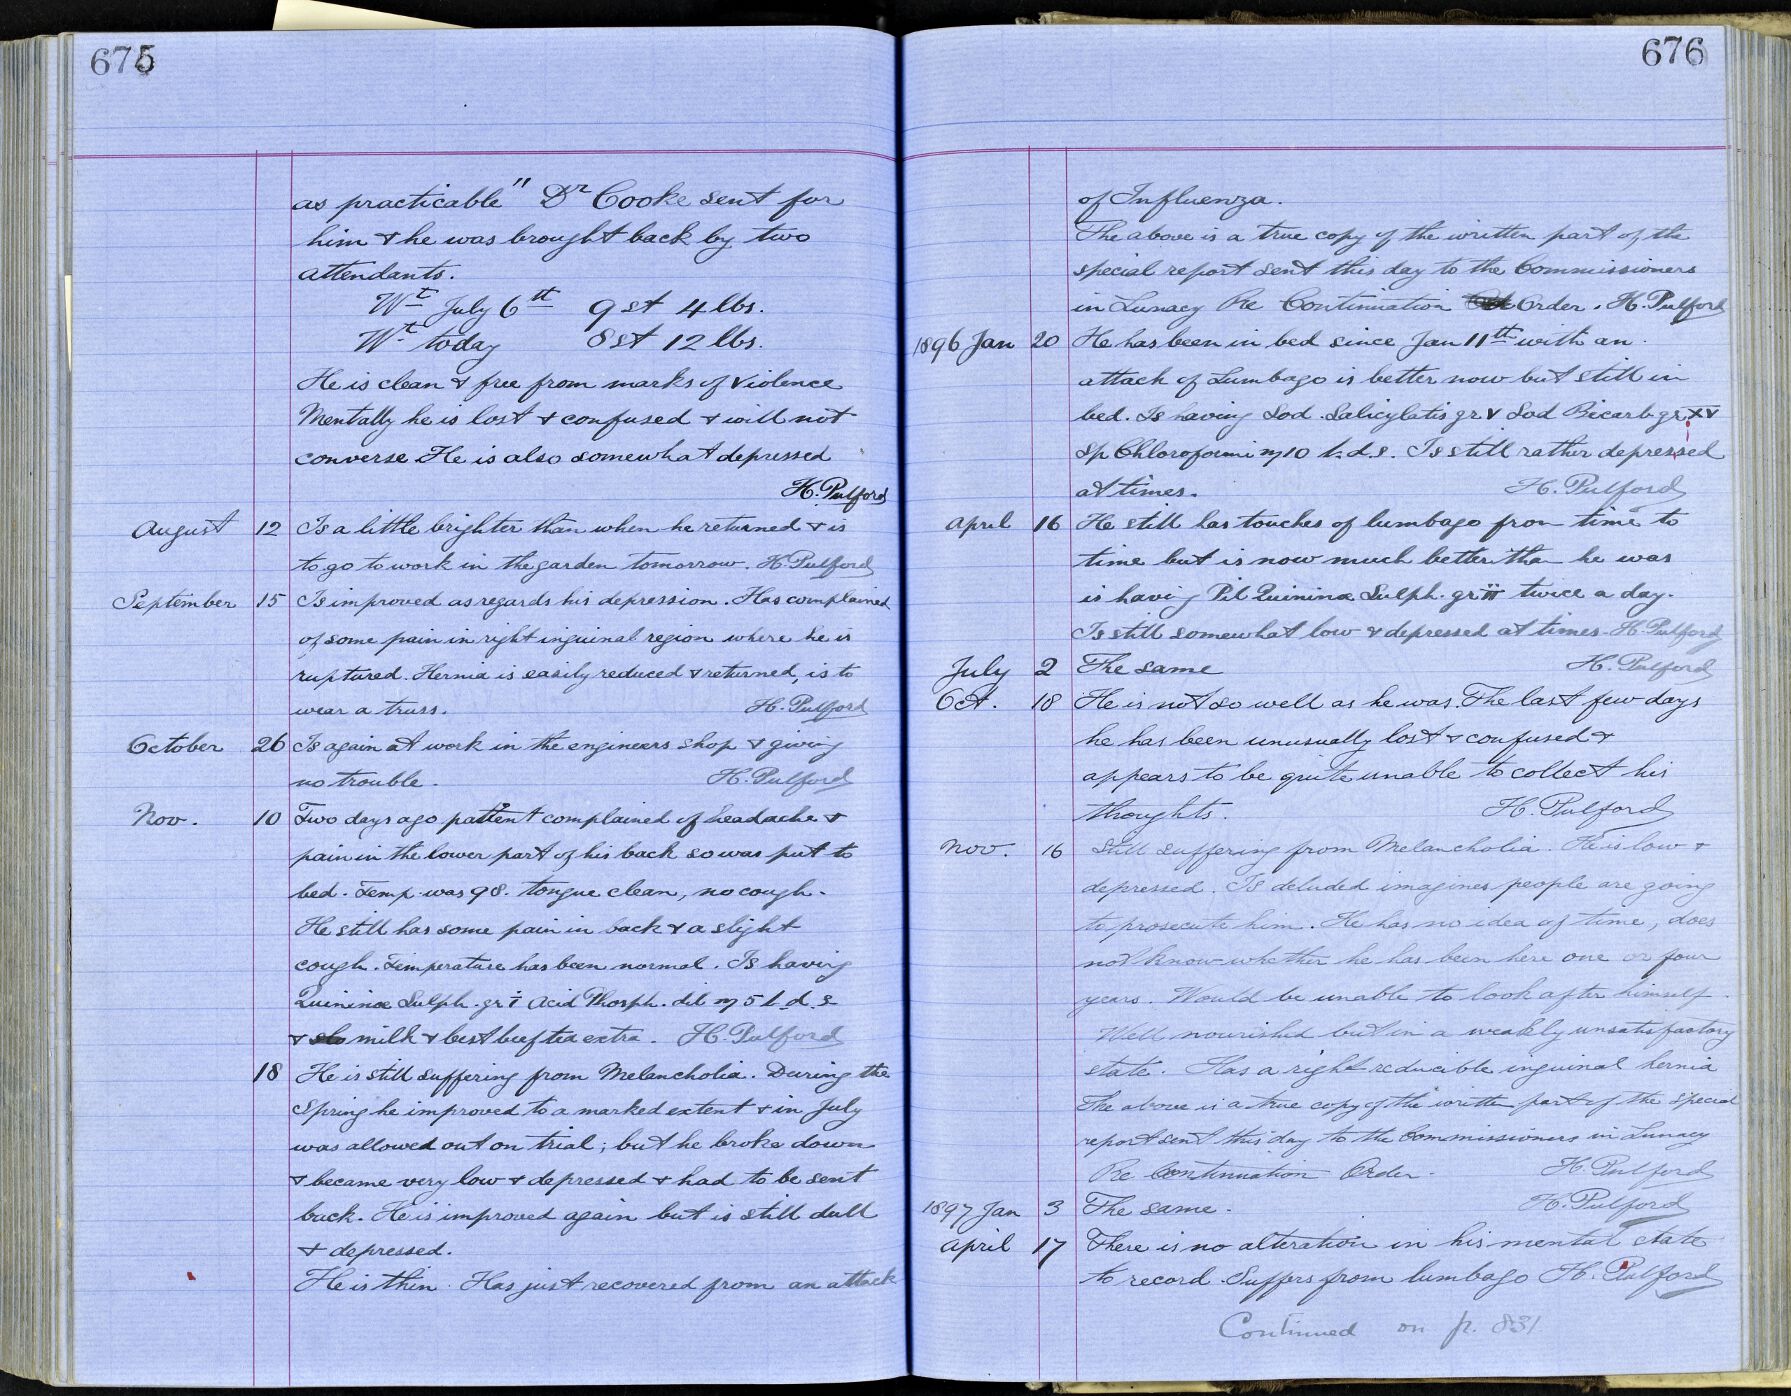 675
as practicable" Dr Cooke sent for
him & he was brought back by two
attendants.
Wt July 6th 9 st 4 lbs.
Wt today 8 st 12 lbs.
He is clean & free from marks of violence
Mentally he is lost & confused & will not
converse He is also somewhat depressed
H. Pulford
August 12 Is a little brighter than when he returned & is
to go to work in the garden tomorrow. H. Pulford
September 15 Is improved as regards his depression. Has complained
of some pain in right inguinal region where he is
ruptured. Hernia is easily reduced & returned, is to
wear a truss. H. Pulford
October 26 Is again at work in the engineers shop & giving
no trouble. H. Pulford
Nov. 10 Two days ago patient complained of headache &
pain in the lower part of his back so was put to
bed. Temp. was 98. tongue clean, no cough.
He still has some pain in back & a slight
cough. Temperature has been normal. Is having
Quininae Sulph. gr i Acid Phosph. dil m 5 t. d. s
& milk & best beef tea extra. H. Pulford
18 He is still suffering from Melancholia. During the
Spring he improved to a marked extent & in July
was allowed out on trial; but he broke down
& became very low & depressed & had to be sent
back. He is improved again but is still dull
& depressed.
He is thin. Has just recovered from an attack
676
of Influenza.
The above is a true copy of the written part of the
special report sent this day to the Commissioners
in Lunacy Re Continuation Order. H. Pulford
1896 Jan 20 He has been in bed since Jan 11th with an
attack of Lumbago is better now but still in
bed. Is having Sod. Salicylatis gr v Sod Bicarb. gr xv
Sp Chloroformi m 10 t. d. s. Is still rather depressed
at times. H. Pulford
April 16 He still has touches of lumbago from time to
time but is now much better than he was
is having Pil Quininae Sulph. gr ii twice a day.
Is still somewhat low & depressed at times. H. Pulford
July 2 The same H. Pulford
Oct. 18 He is not so well as he was. The last few days
he has been unusually lost & confused &
appears to be quite unable to collect his
thoughts. H. Pulford
Nov. 16 Still suffering from Melancholia. He is low &
depressed. Is deluded imagines people are going
to prosecute him. He has no idea of time, does
not know whether he has been here one or four
years. Would be unable to look after himself.
Well nourished but in a weakly unsatisfactory
state. Has a right reducible inguinal hernia
The above is a true copy of the written part of the special
report sent this day to the Commissioners in Lunacy
Re Continuation Order. H. Pulford
1897 Jan 3 The same. H. Pulford
April 17 There is no alteration in his mental state
to record. Suffers from lumbago H. Pulford
Continued on p. 831